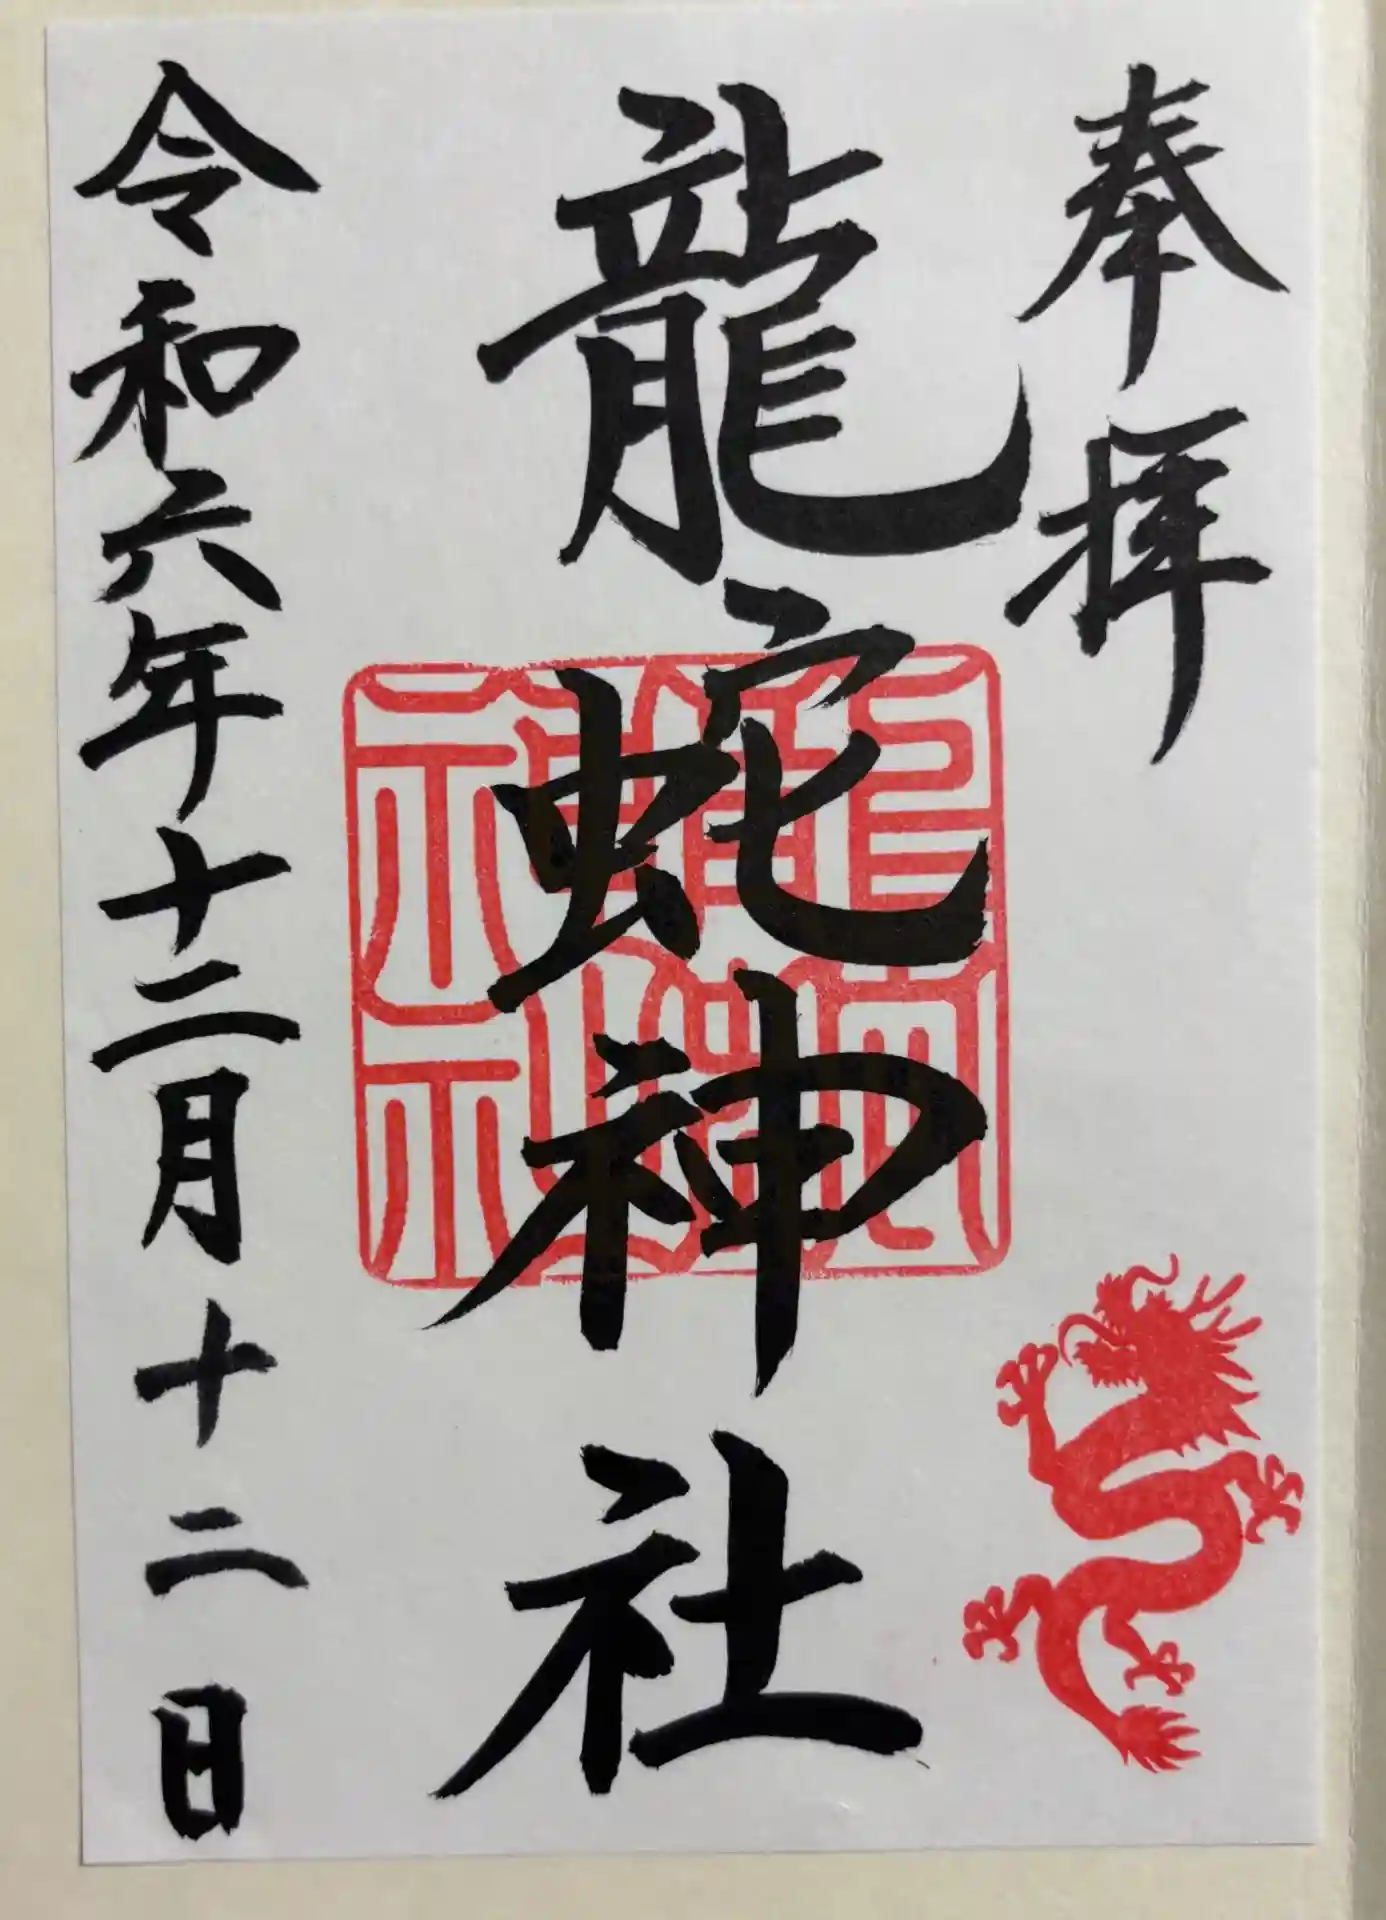 奉拝
龍蛇神社
龍蛇神社
令和六年十二月十二日